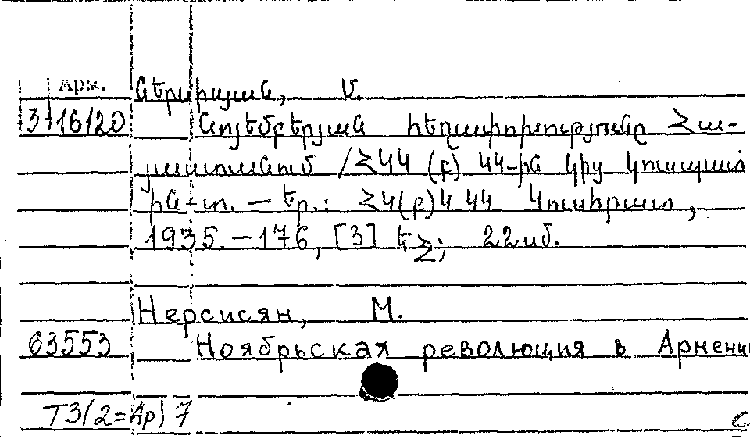 Арм. Ներսիսյան, Մ.
3 16120 Նոյեմբերյան հեղափոխությունը Հա-
յաստանում /ՀԿԿ (բ) ԿԿ-ին կից կուսպատ
ին-տ. — Եր.: ՀԿ(բ)Կ ԿԿ Կուսհրատ,
1935.—176, [3] էջ; 22սմ.
Нерсисян, М.
63553 Ноябрьская революция в Армени
Т3(2=Ар)7